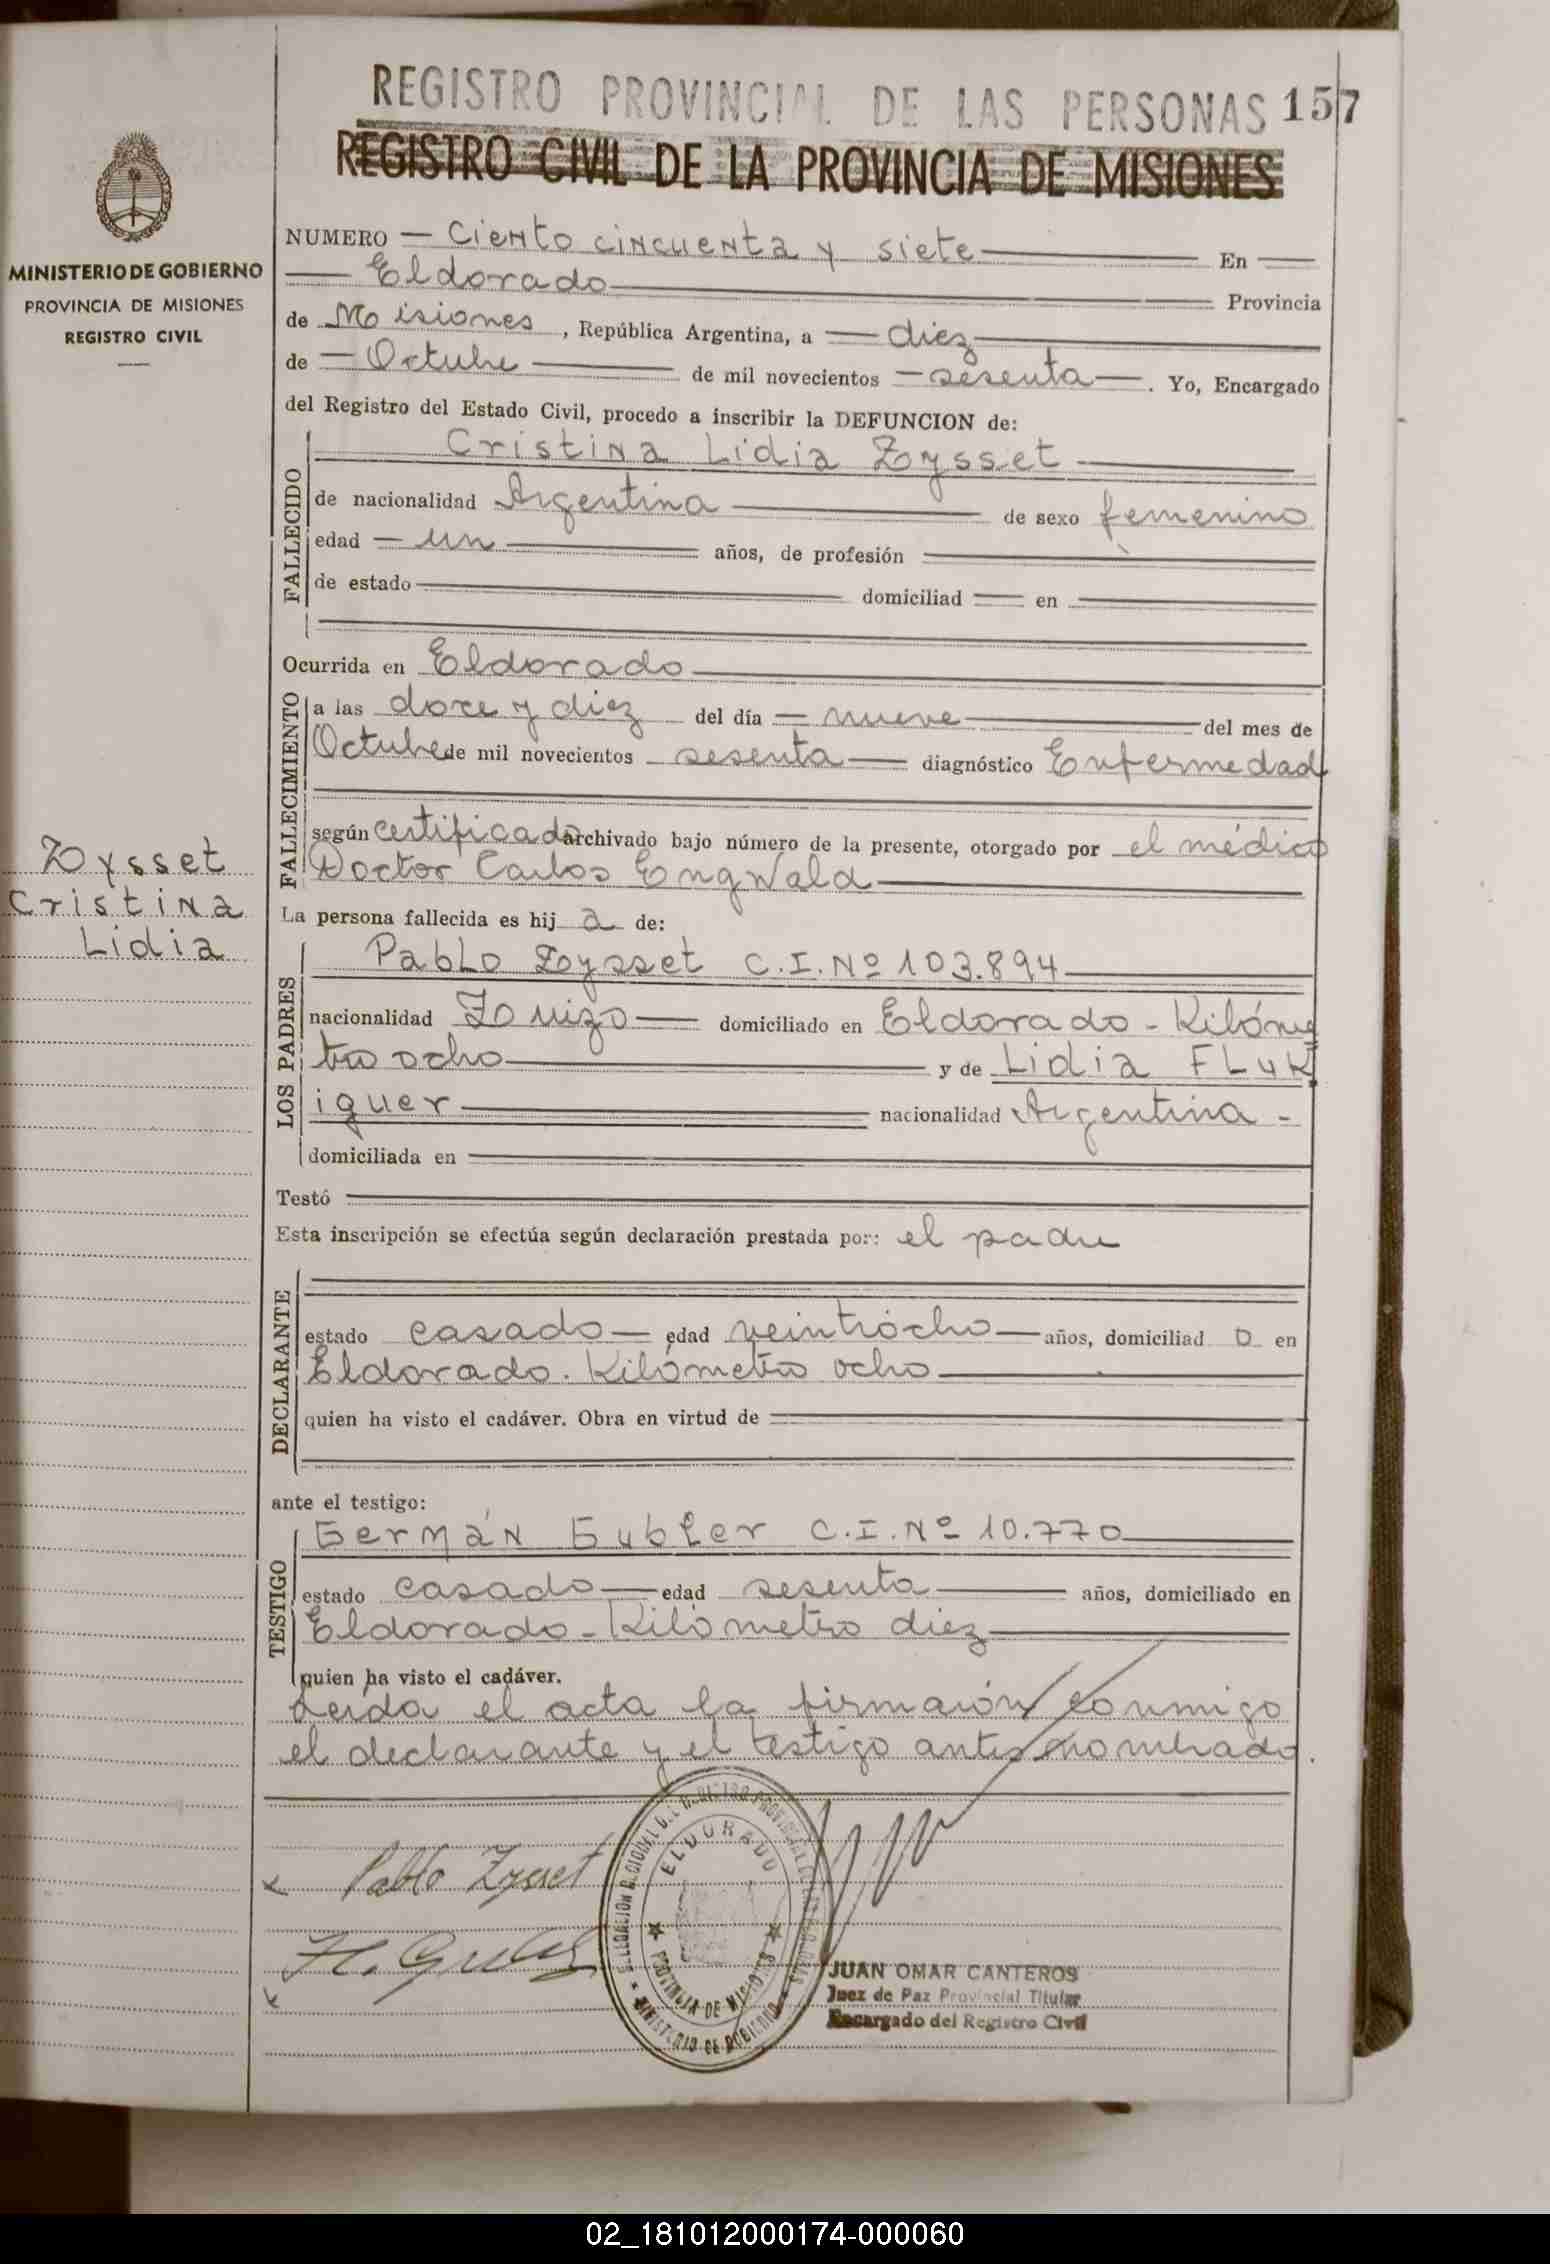 REGISTRO PROVINCIAL DE LAS PERSONAS 157
REGISTRO CIVIL DE LA PROVINCIA DE MISIONES
MINISTERIO DE GOBIERNO
PROVINCIA DE MISIONES
REGISTRO CIVIL
NUMERO Ciento cincuenta y siete En
Eldorado Provincia
de Misiones, República Argentina, a diez
de Octubre de mil novecientos sesenta. Yo, Encargado
del Registro del Estado Civil, procedo a inscribir la DEFUNCION de:
FALLECIDO
Cristina Lidia Zysset
de nacionalidad Argentina de sexo femenino
edad un años, de profesión
de estado domiciliad en
Ocurrida en Eldorado
FALLECIMIENTO
a las doce y diez del día nueve del mes de
Octubre de mil novecientos sesenta diagnóstico Enfermedad
según certificado archivado bajo número de la presente, otorgado por el médico
Doctor Carlos Engwald
Zysset
Cristina
Lidia
La persona fallecida es hij a de:
LOS PADRES
Pablo Zysset C.I.Nº 103.894
nacionalidad Zuizo domiciliado en Eldorado - Kilóme
tro ocho y de Lidia FLuk
iguer nacionalidad Argentina -
domiciliada en
Testó
Esta inscripción se efectúa según declaración prestada por: el padre
DECLARANTE
estado casado edad veintiocho años, domiciliad o en
Eldorado. Kilómetro ocho
quien ha visto el cadáver. Obra en virtud de
ante el testigo:
TESTIGO
Germán Gubler C.I.Nº 10.770
estado casado edad sesenta años, domiciliado en
Eldorado - Kilómetro diez
quien ha visto el cadáver.
Leida el acta la firmarón conmigo
el declarante y el testigo antes nombrado.
Pablo Zysset
ELDORADO
PROVINCIA DE MISIONES
MINISTERIO DE GOBIERNO
JUAN OMAR CANTEROS
Juez de Paz Provincial Titular
Encargado del Registro Civil
02_181012000174-000060